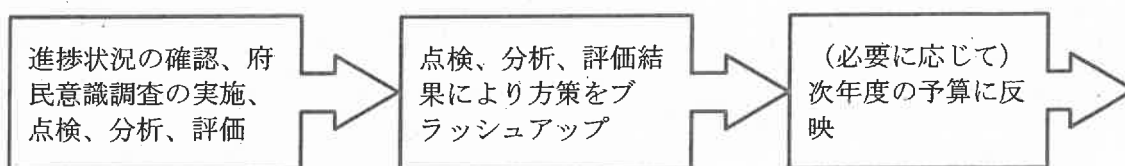 進捗状況の確認、府
民意識調査の実施、
点検、分析、評価
点検、分析、評価結
果により方策をブ
ラッシュアップ
（必要に応じて）
次年度の予算に反
映